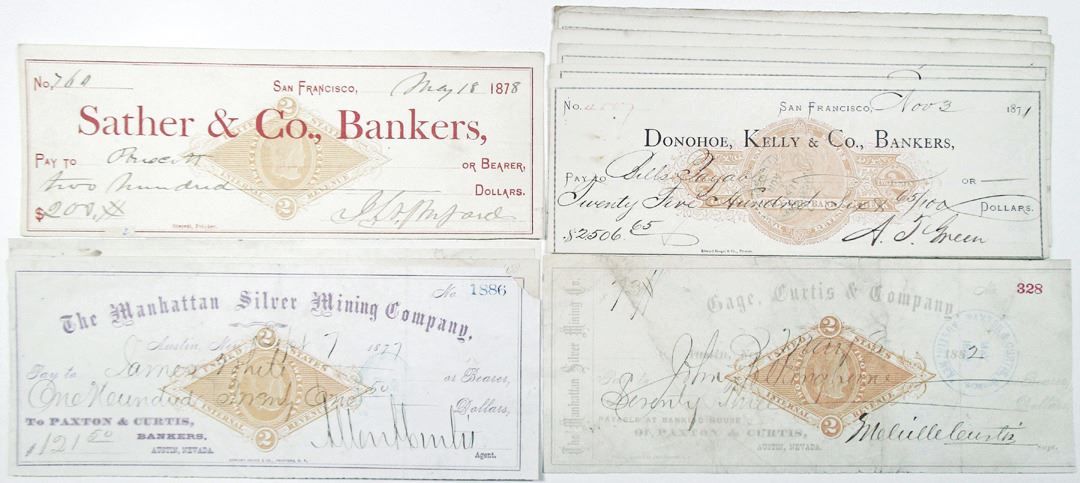 No. 760
SAN FRANCISCO, May 18 1878
Sather & Co., Bankers,
PAY TO OR BEARER,
two hundred DOLLARS.
$200.XX
2
UNITED STATES
INTERNAL REVENUE
No.
SAN FRANCISCO, Nov 3 1871
DONOHOE, KELLY & CO., BANKERS,
PAY TO Bills Payable OR
Twenty Five Hundred six & 65/100 DOLLARS.
$2506 65 A. T. Green
No. 1886
The Manhattan Silver Mining Company,
Austin, Nev. 7 1877
Pay to James or Bearer,
One Hundred One 50 Dollars,
To PAXTON & CURTIS,
BANKERS,
AUSTIN, NEVADA.
$121 50
Agent.
2
UNITED STATES
INTERNAL REVENUE
2
The Manhattan Silver Mining Co.
No. 328
Gage, Curtis & Company
Austin, 1882
John
Seventy Three
PAYABLE AT BANKING HOUSE
OF PAXTON & CURTIS,
AUSTIN, NEVADA.
Melville Curtis
Supt.
2
UNITED STATES
INTERNAL REVENUE
2